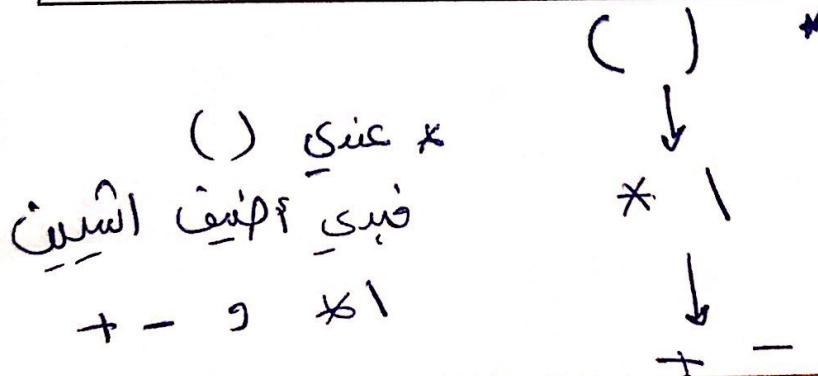 * ( )
↓
* \
↓
+ -
* عندي ( )
فبدي أضيف اشيين
\ * و - +